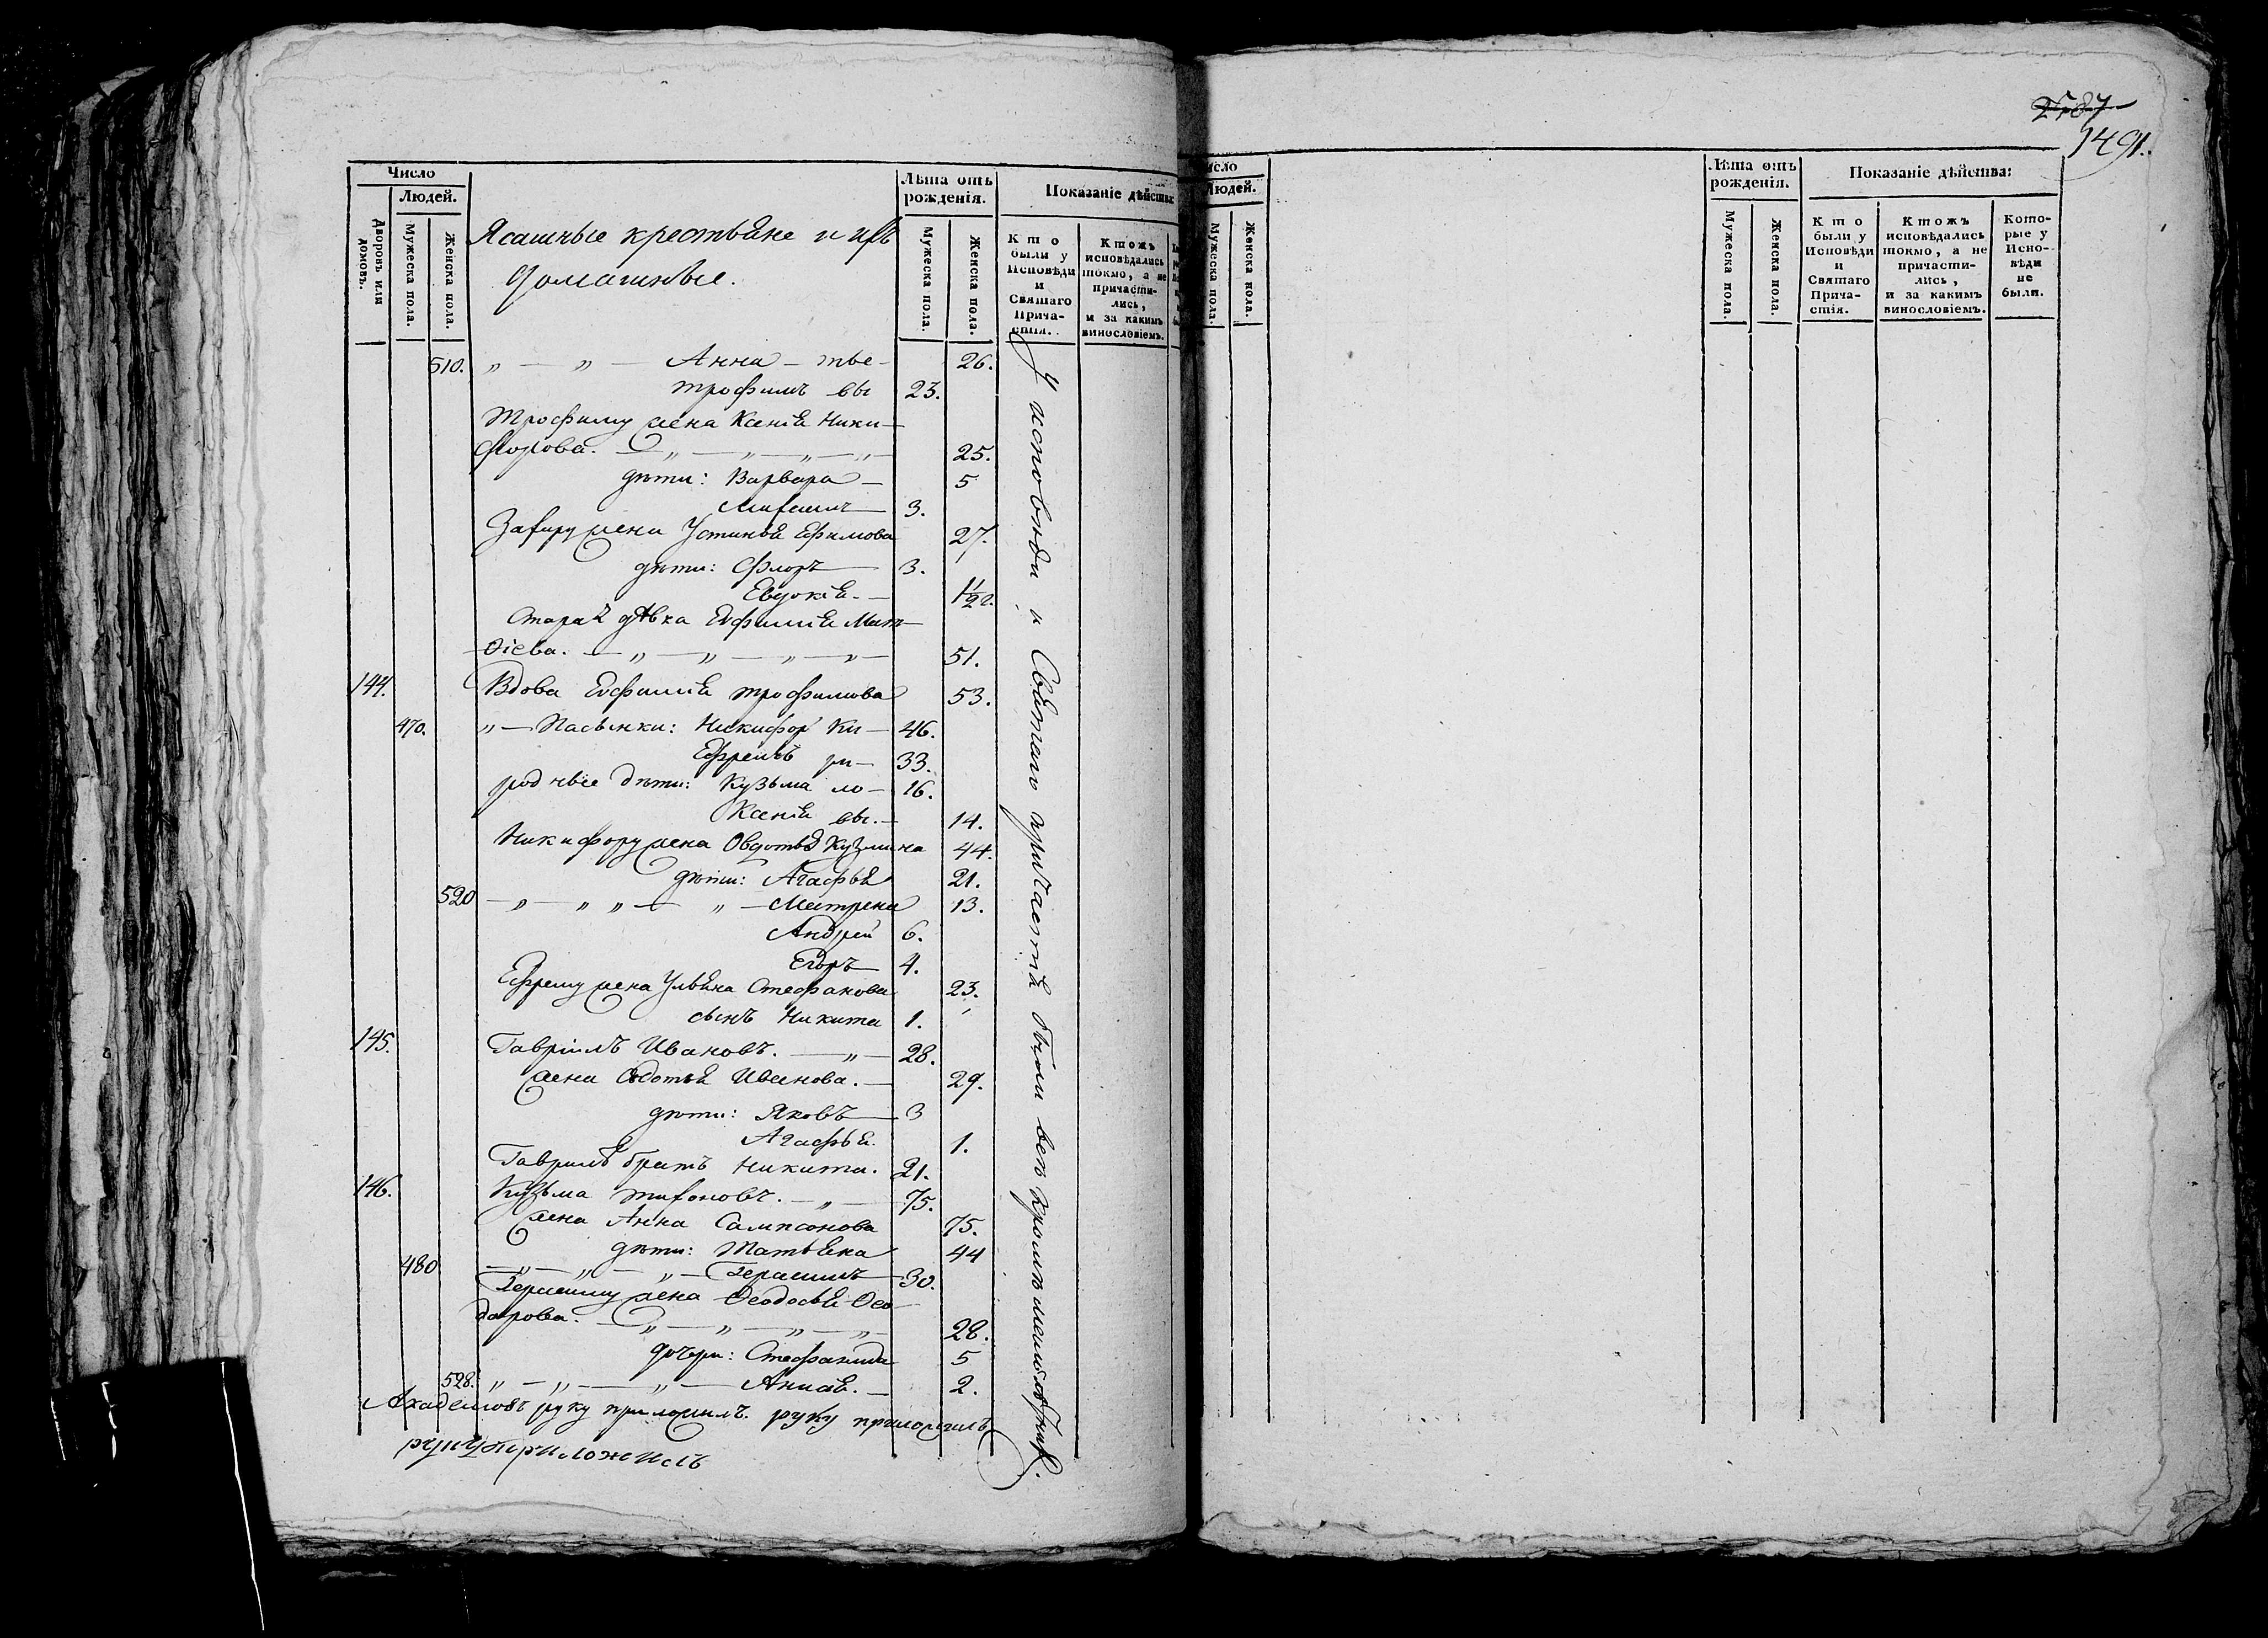 Число
Людей.
Дворовъ или домовъ.
Мужеска пола.
Женска пола.
Ясашные крестьяне и ихъ
домашные.
Лѣта отъ
рожденія.
Мужеска пола.
Женска пола.
Показаніе дѣйства
Кто
были у
Исповѣди
и
Святаго
Прича-
стія.
Ктожъ
исповѣдались
токмо, а не
причасти-
лись,
и за какимъ
винословіемъ.
510. „ — „ — Анна — 26.
Трофимъ 23.
Трофиму жена Ксенія Ники-
форова. — „ — „ — „ — „ — 25.
дѣти: Варвара — 5
Михаилъ 3.
Захару жена Устинья Ефимова 27.
дѣти: Флоръ 3.
Евдокія. — 1 1/2
дѣвка Евфимія Мат-
ѳіева. — „ — „ — „ — „ — 51.
144. Вдова Евфимія Трофимова 53.
470. „ — Пасынки: Никифор — 46.
Ефремъ — 33.
родныe дѣти: Кузьма — 16.
Ксенія — 14.
Никифору жена Овдотья Кузмина 44.
дѣти: Агафья 21.
520 — „ — „ „ — „ — Матрена 13.
Андрей 6.
Егоръ 4.
Ефрему жена Ульяна Стефанова 23.
сынъ Никита 1.
145. Гавріилъ Ивановъ. — „ — 28.
жена Овдотья Иванова. — 29.
дѣти: Яковъ 3
Агафья. 1.
Гаврилѣ братъ Никита. 21.
146. Кузьма Тихоновъ. — „ — 75.
жена Анна Сампсонова 75.
дѣти: Татьяна 44
480 — „ — „ — „ — Герасимъ 30.
Герасиму жена Ѳеодосья Ѳео-
дорова. — „ — „ — „ — „ — 28.
дочери: Стефанида 5
528. „ — „ — „ — Анисія. — 2.
руку приложилъ. руку приложилъ
руку приложилъ
У исповѣди и Святаго причастія были всѣ кромѣ
2787
1491.
исло
Людей.
Мужеска пола.
Женска пола.
Лѣта отъ
рожденія.
Мужеска пола.
Женска пола.
Показаніе дѣйства:
Кто
были у
Исповѣди
и
Святаго
Прича-
стія.
Ктожъ
исповѣдались
токмо, а не
причасти-
лись,
и за какимъ
винословіемъ.
Кото-
рые у
Испо-
вѣди
не
были.